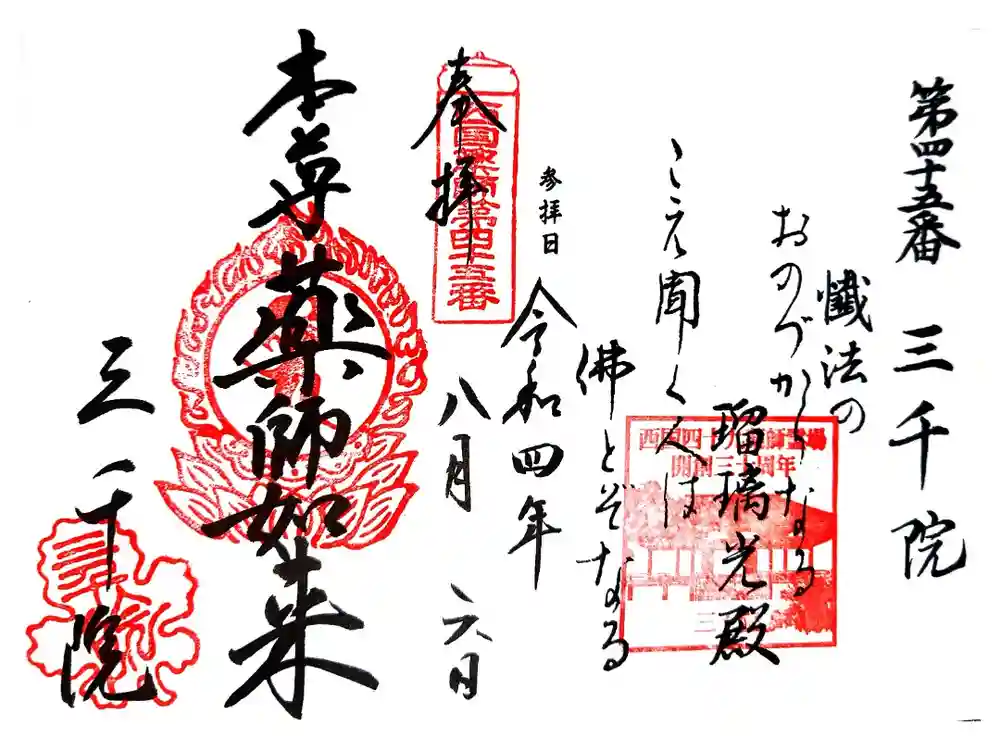 第四十五番 三千院
懺法の
おのづからなる
瑠璃光殿
こゑ聞く人は
佛とぞなる
西国四十九薬師霊場
開創三十周年
参拝日
令和四年
八月六日
奉拝
西国薬師第四十五番
本尊薬師如来
三千院